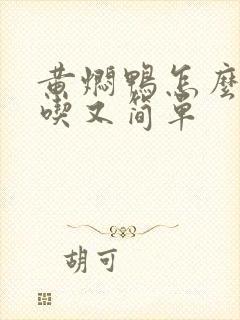 黄焖鸭怎麽
喫又简单
胡可